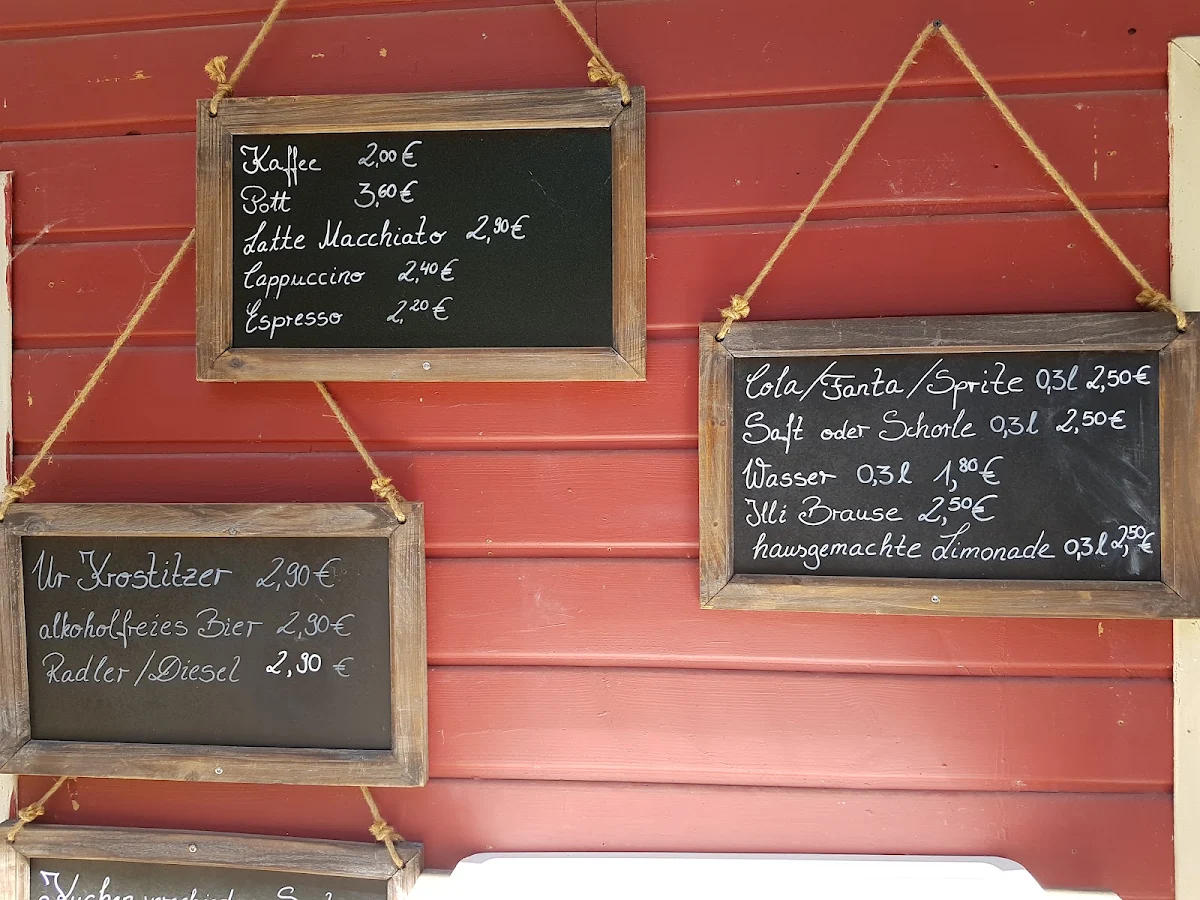 Kaffee 2,00 €
Pott 3,60 €
Latte Macchiato 2,90 €
Cappuccino 2,40 €
Espresso 2,20 €
Cola/Fanta/Sprite 0,3l 2,50 €
Saft oder Schorle 0,3l 2,50 €
Wasser 0,3l 1,80 €
Illi Brause 2,50 €
hausgemachte Limonade 0,3l 2,50 €
Ur Krostitzer 2,90 €
alkoholfreies Bier 2,90 €
Radler/Diesel 2,90 €
Kuchen